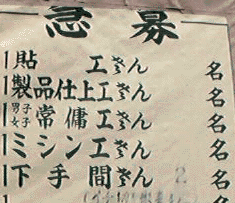 急募
1貼 工さん 名
1製品仕上工さん 名
1男子女子常傭工さん 名
1ミシン工さん 名
1下手間さん 2名